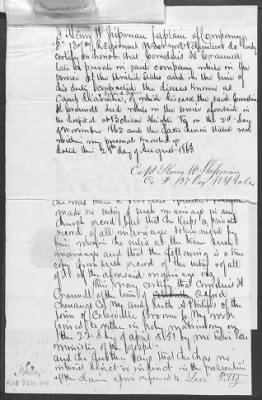 I Henry W Shipman Captain of Company
F 137th Regiment New York Volunteers do hereby
certify on honor that Cornelius H Crandall
late a private in said company while in the
service of the United States and in the line of
his duty contracted the disease known as
Camp diarrhoea, of which disease the said Cornelius
H Crandall died while in the service aforesaid in
the hospital at Bolivar Heights Va on the 22d day
of November 1862 and the facts herein stated are
within my personal knowledge
dated this 22d day of August 1863
Capt Henry W Shipman
Co F 137 Reg N.Y. Vols
made no entry of such marriage in any
church record but that he kept a private
record of all marriages solemnized by
him which he makes at the time such
marriage and that the following is a true
copy from such record of the entry of all
of the aforesaid marriage viz
This may certify that Cornelius H
Crandall of the town of Oxford
Chenango Co NY and Ruth A Phelps of the
town of Colesville Broome Co NY were
joined together in holy matrimony on
the 22 day of April 1851 by me
minister of the gospel
and he further says that he has no
interest direct or indirect in the prosecution
of the claim above referred to